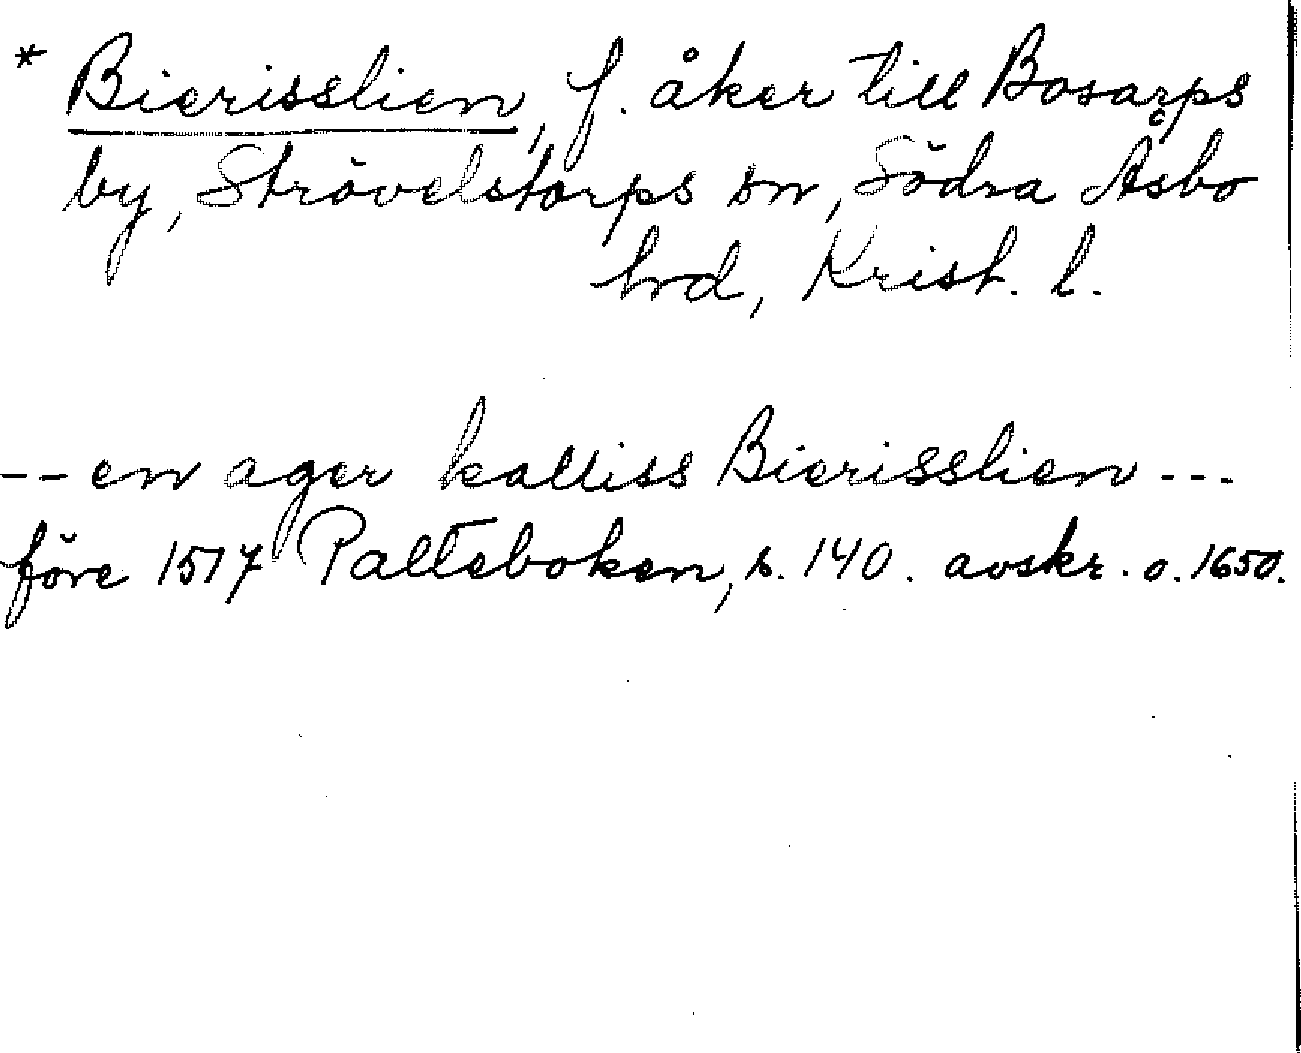 * Bierisslien, f. åker till Bosarps
by, Strövelstorps sn, Södra Åsbo
hrd, Krist. l.
-- en ager kalliss Bierisslien ---
före 1517 Palteboken, s. 140. avskr. o. 1650.